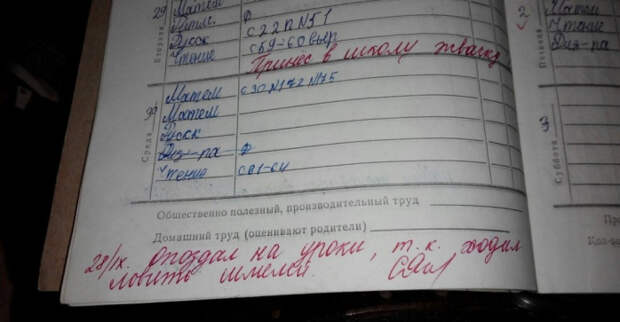 29
Матем
Русск с 22 п N 51
Чтение с 59-60 выр
Принёс в школу жвачку
Вторник
30
Матем с 30 N 172 N 175
Матем
Русск
Физ-ра
Чтение с 61-64
Среда
Общественно полезный, производительный труд
Домашний труд (оценивают родители)
28/IX. Опоздал на уроки, т.к. ходил
ловить шмелей.
2
Матем
Чтение
Физ-ра
Пятница
3
Суббота